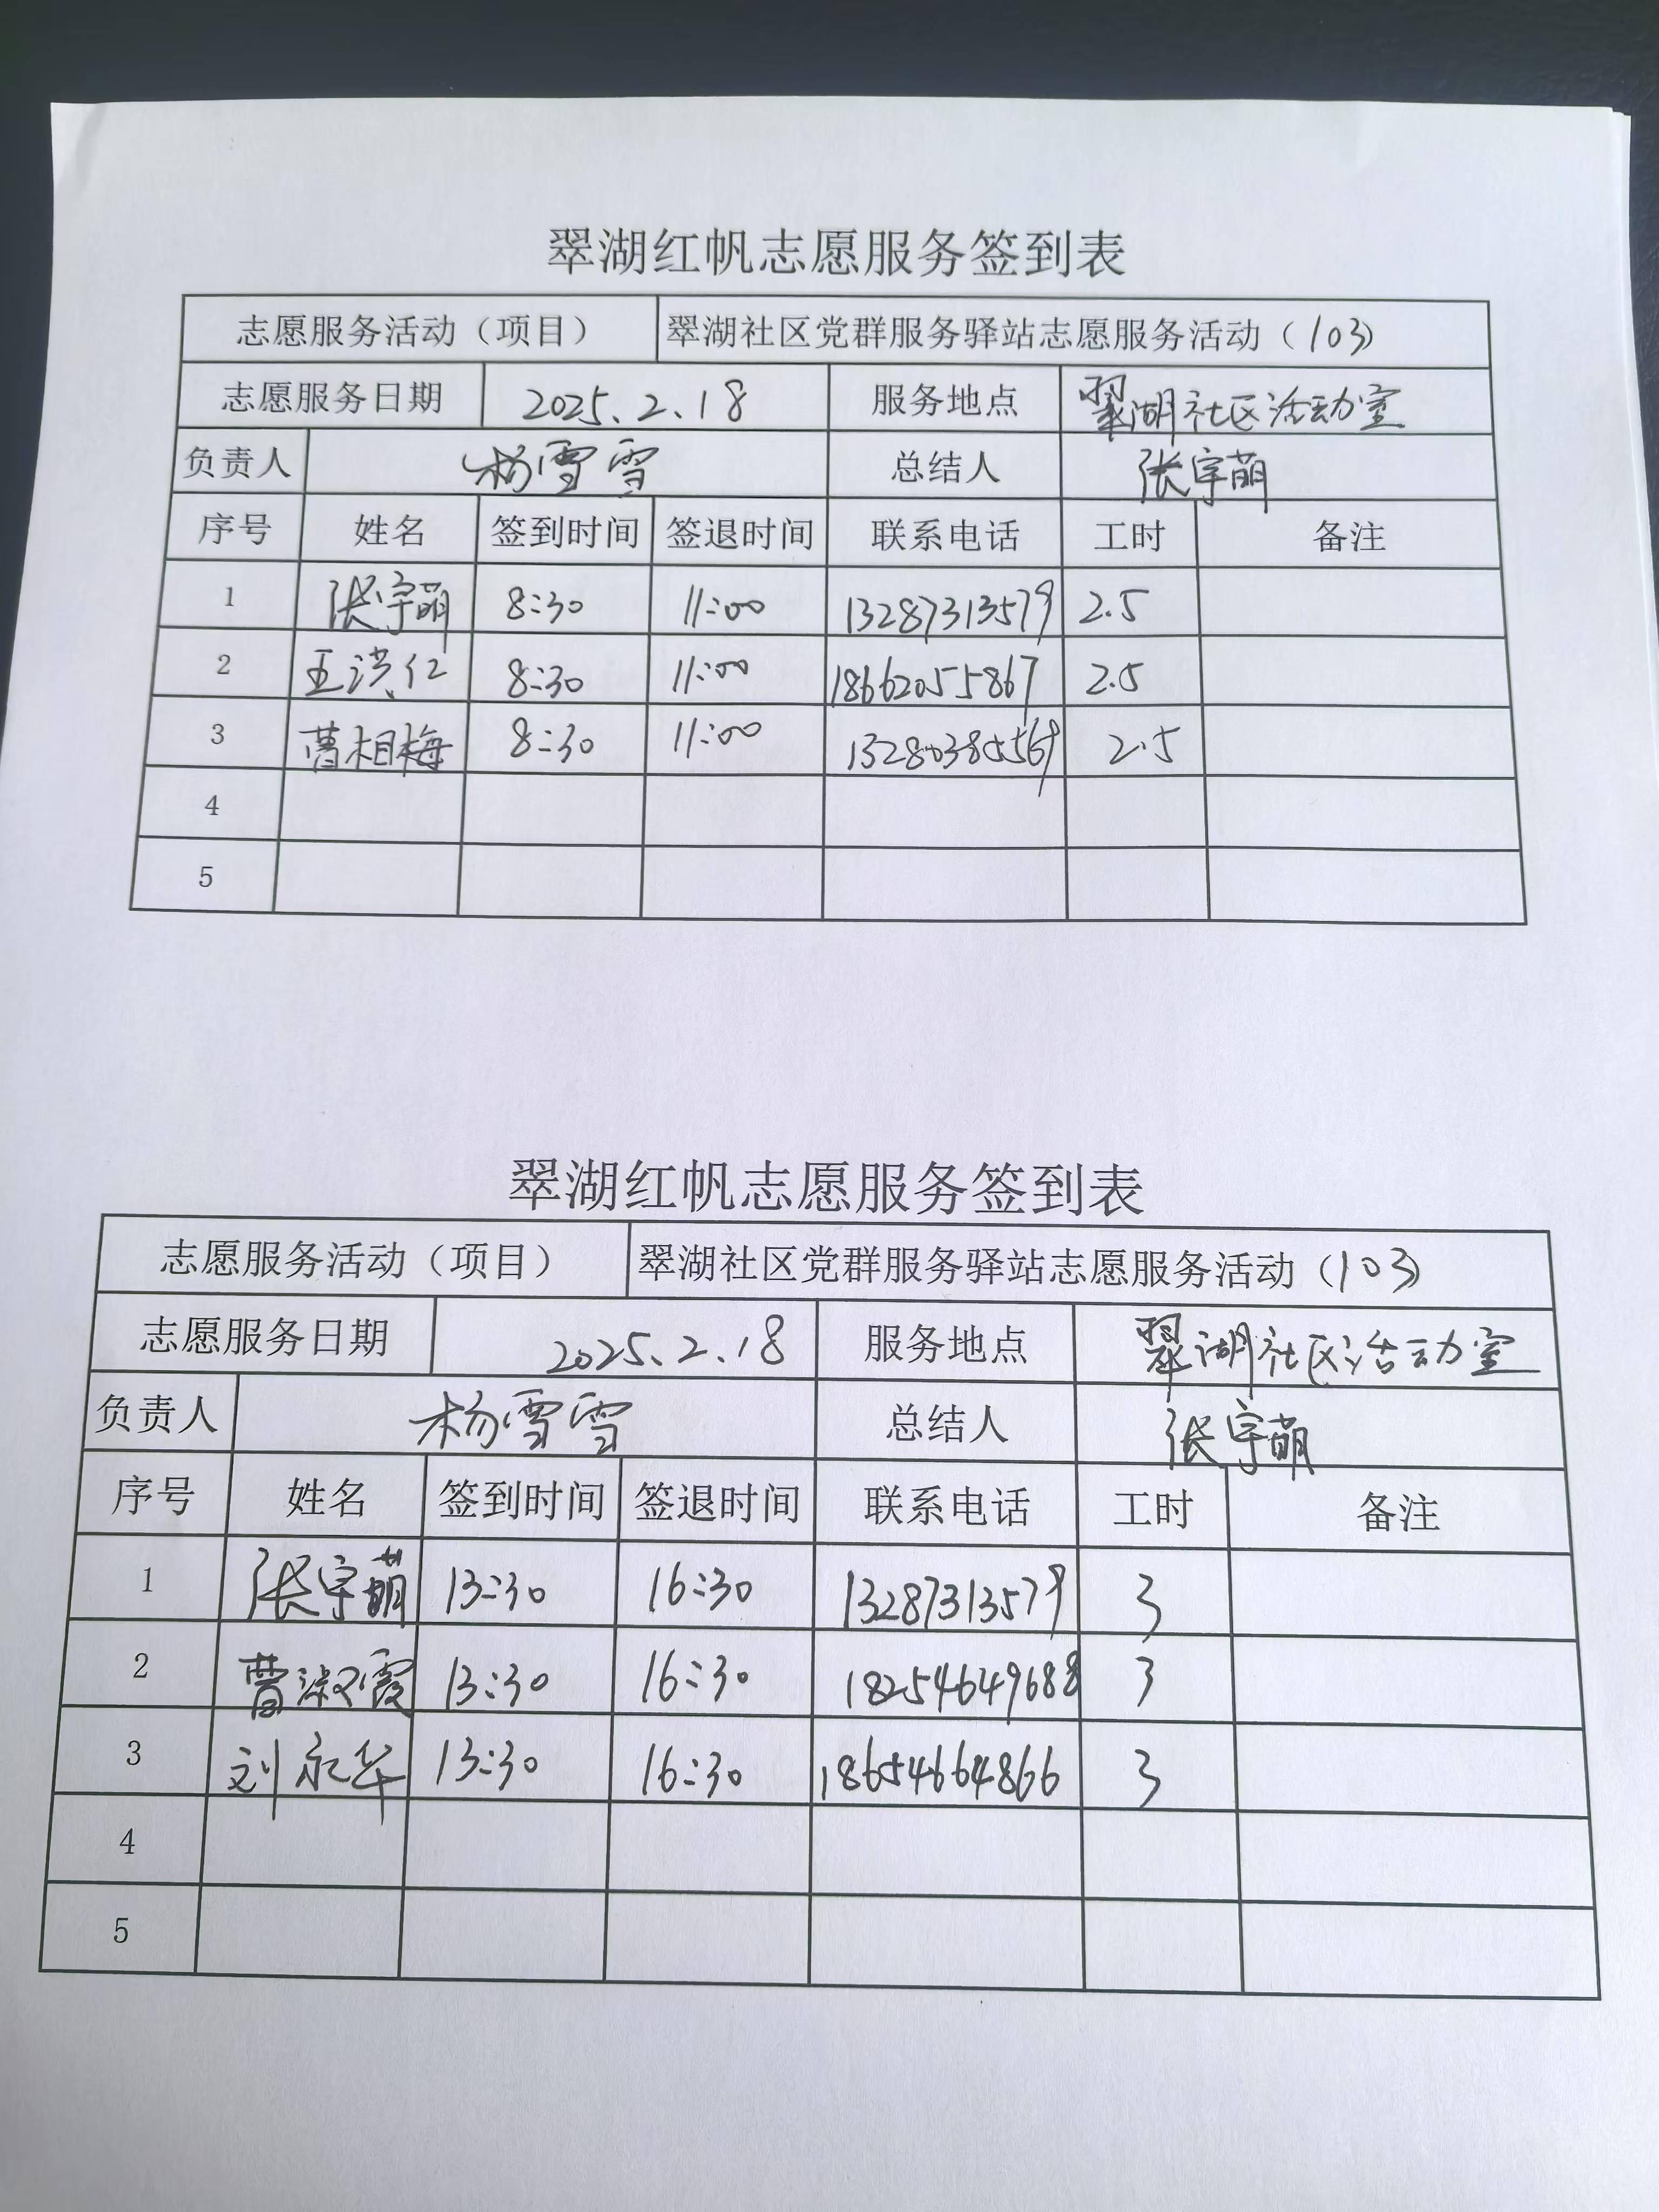 翠湖红帆志愿服务签到表
志愿服务活动（项目） 翠湖社区党群服务驿站志愿服务活动（103）
志愿服务日期 2025.2.18 服务地点 翠湖社区活动室
负责人 杨雪雪 总结人 张宇萌
序号 姓名 签到时间 签退时间 联系电话 工时 备注
1 张宇萌 8:30 11:00 13287313579 2.5
2 王洪仁 8:30 11:00 18662055867 2.5
3 曹相梅 8:30 11:00 13280385569 2.5
4
5
翠湖红帆志愿服务签到表
志愿服务活动（项目） 翠湖社区党群服务驿站志愿服务活动（103）
志愿服务日期 2025.2.18 服务地点 翠湖社区活动室
负责人 杨雪雪 总结人 张宇萌
序号 姓名 签到时间 签退时间 联系电话 工时 备注
1 张宇萌 13:30 16:30 13287313579 3
2 曹淑霞 13:30 16:30 18254649688 3
3 刘永华 13:30 16:30 18654664866 3
4
5